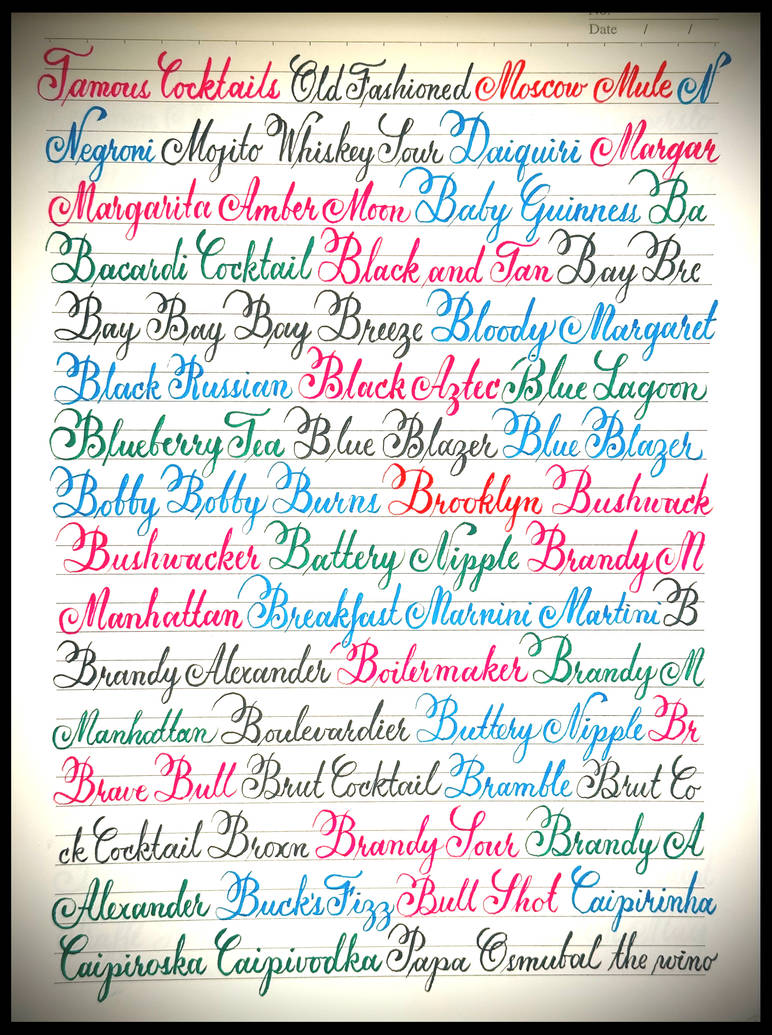 Date / /
Famous Cocktails Old Fashioned Moscow Mule N
Negroni Mojito Whiskey Sour Daiquiri Margar
Margarita Amber Moon Baby Guinness Ba
Bacardi Cocktail Black and Tan Bay Bre
Bay Bay Bay Breeze Bloody Margaret
Black Russian Black Aztec Blue Lagoon
Blueberry Tea Blue Blazer Blue Blazer
Bobby Bobby Burns Brooklyn Bushwack
Bushwacker Battery Nipple Brandy M
Manhattan Breakfast Marnini Martini B
Brandy Alexander Boilermaker Brandy M
Manhattan Boulevardier Buttery Nipple Br
Brave Bull Brut Cocktail Bramble Brut Co
ck Cocktail Broxn Brandy Sour Brandy A
Alexander Buck's Fizz Bull Shot Caipirinha
Caipiroska Caipivodka Papa Osmubal the wino